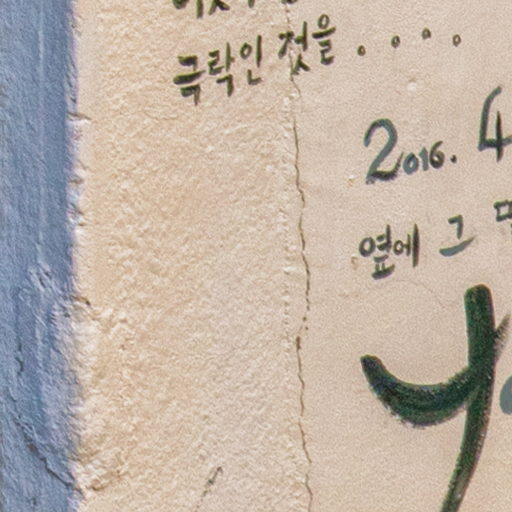 극락인 것을 . . . .
2016. 4
옆에 그
y